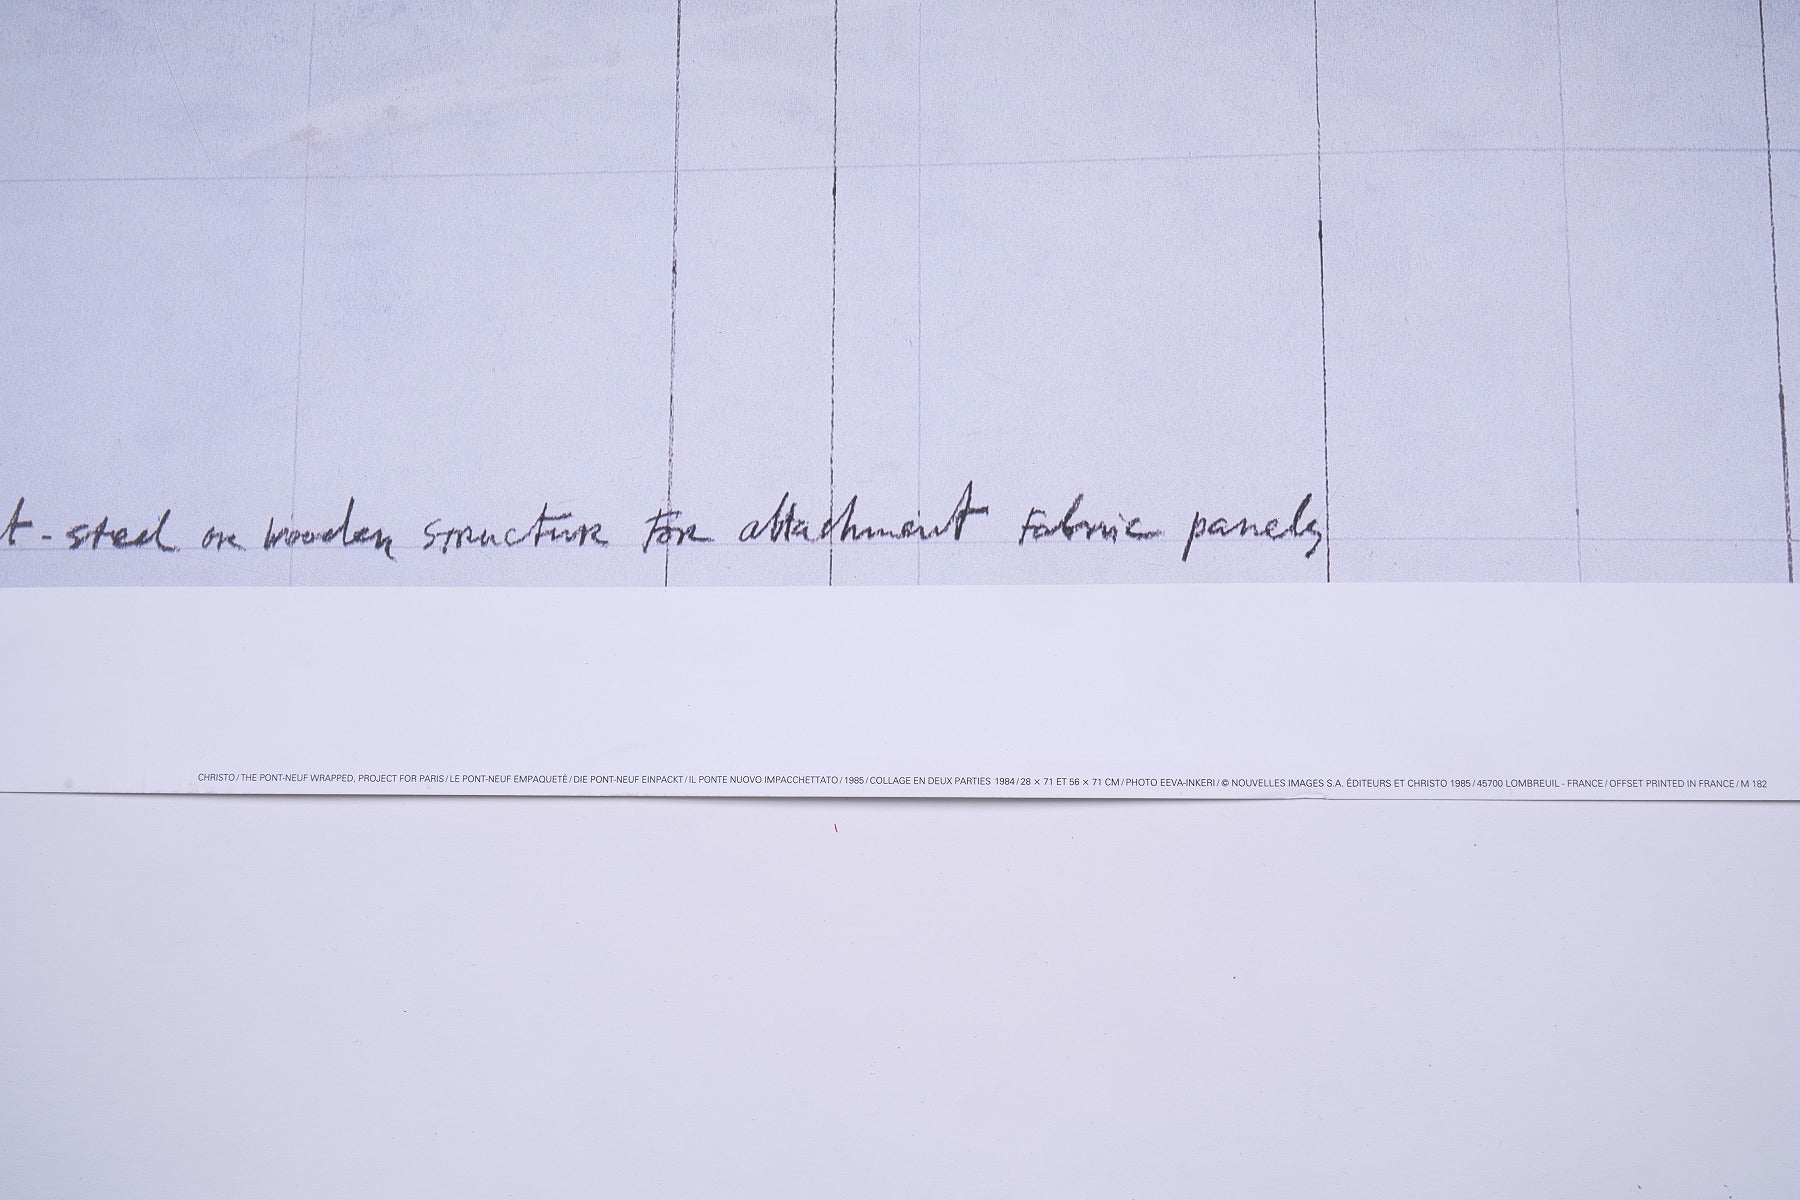 t - steel or wooden structure for attachment fabric panels
CHRISTO / THE PONT-NEUF WRAPPED, PROJECT FOR PARIS / LE PONT-NEUF EMPAQUETÉ / DIE PONT-NEUF EINPACKT / IL PONTE NUOVO IMPACCHETTATO / 1985 / COLLAGE EN DEUX PARTIES 1984 / 28 × 71 ET 56 × 71 CM / PHOTO EEVA-INKERI / © NOUVELLES IMAGES S.A. ÉDITEURS ET CHRISTO 1985 / 45700 LOMBREUIL - FRANCE / OFFSET PRINTED IN FRANCE / M 182